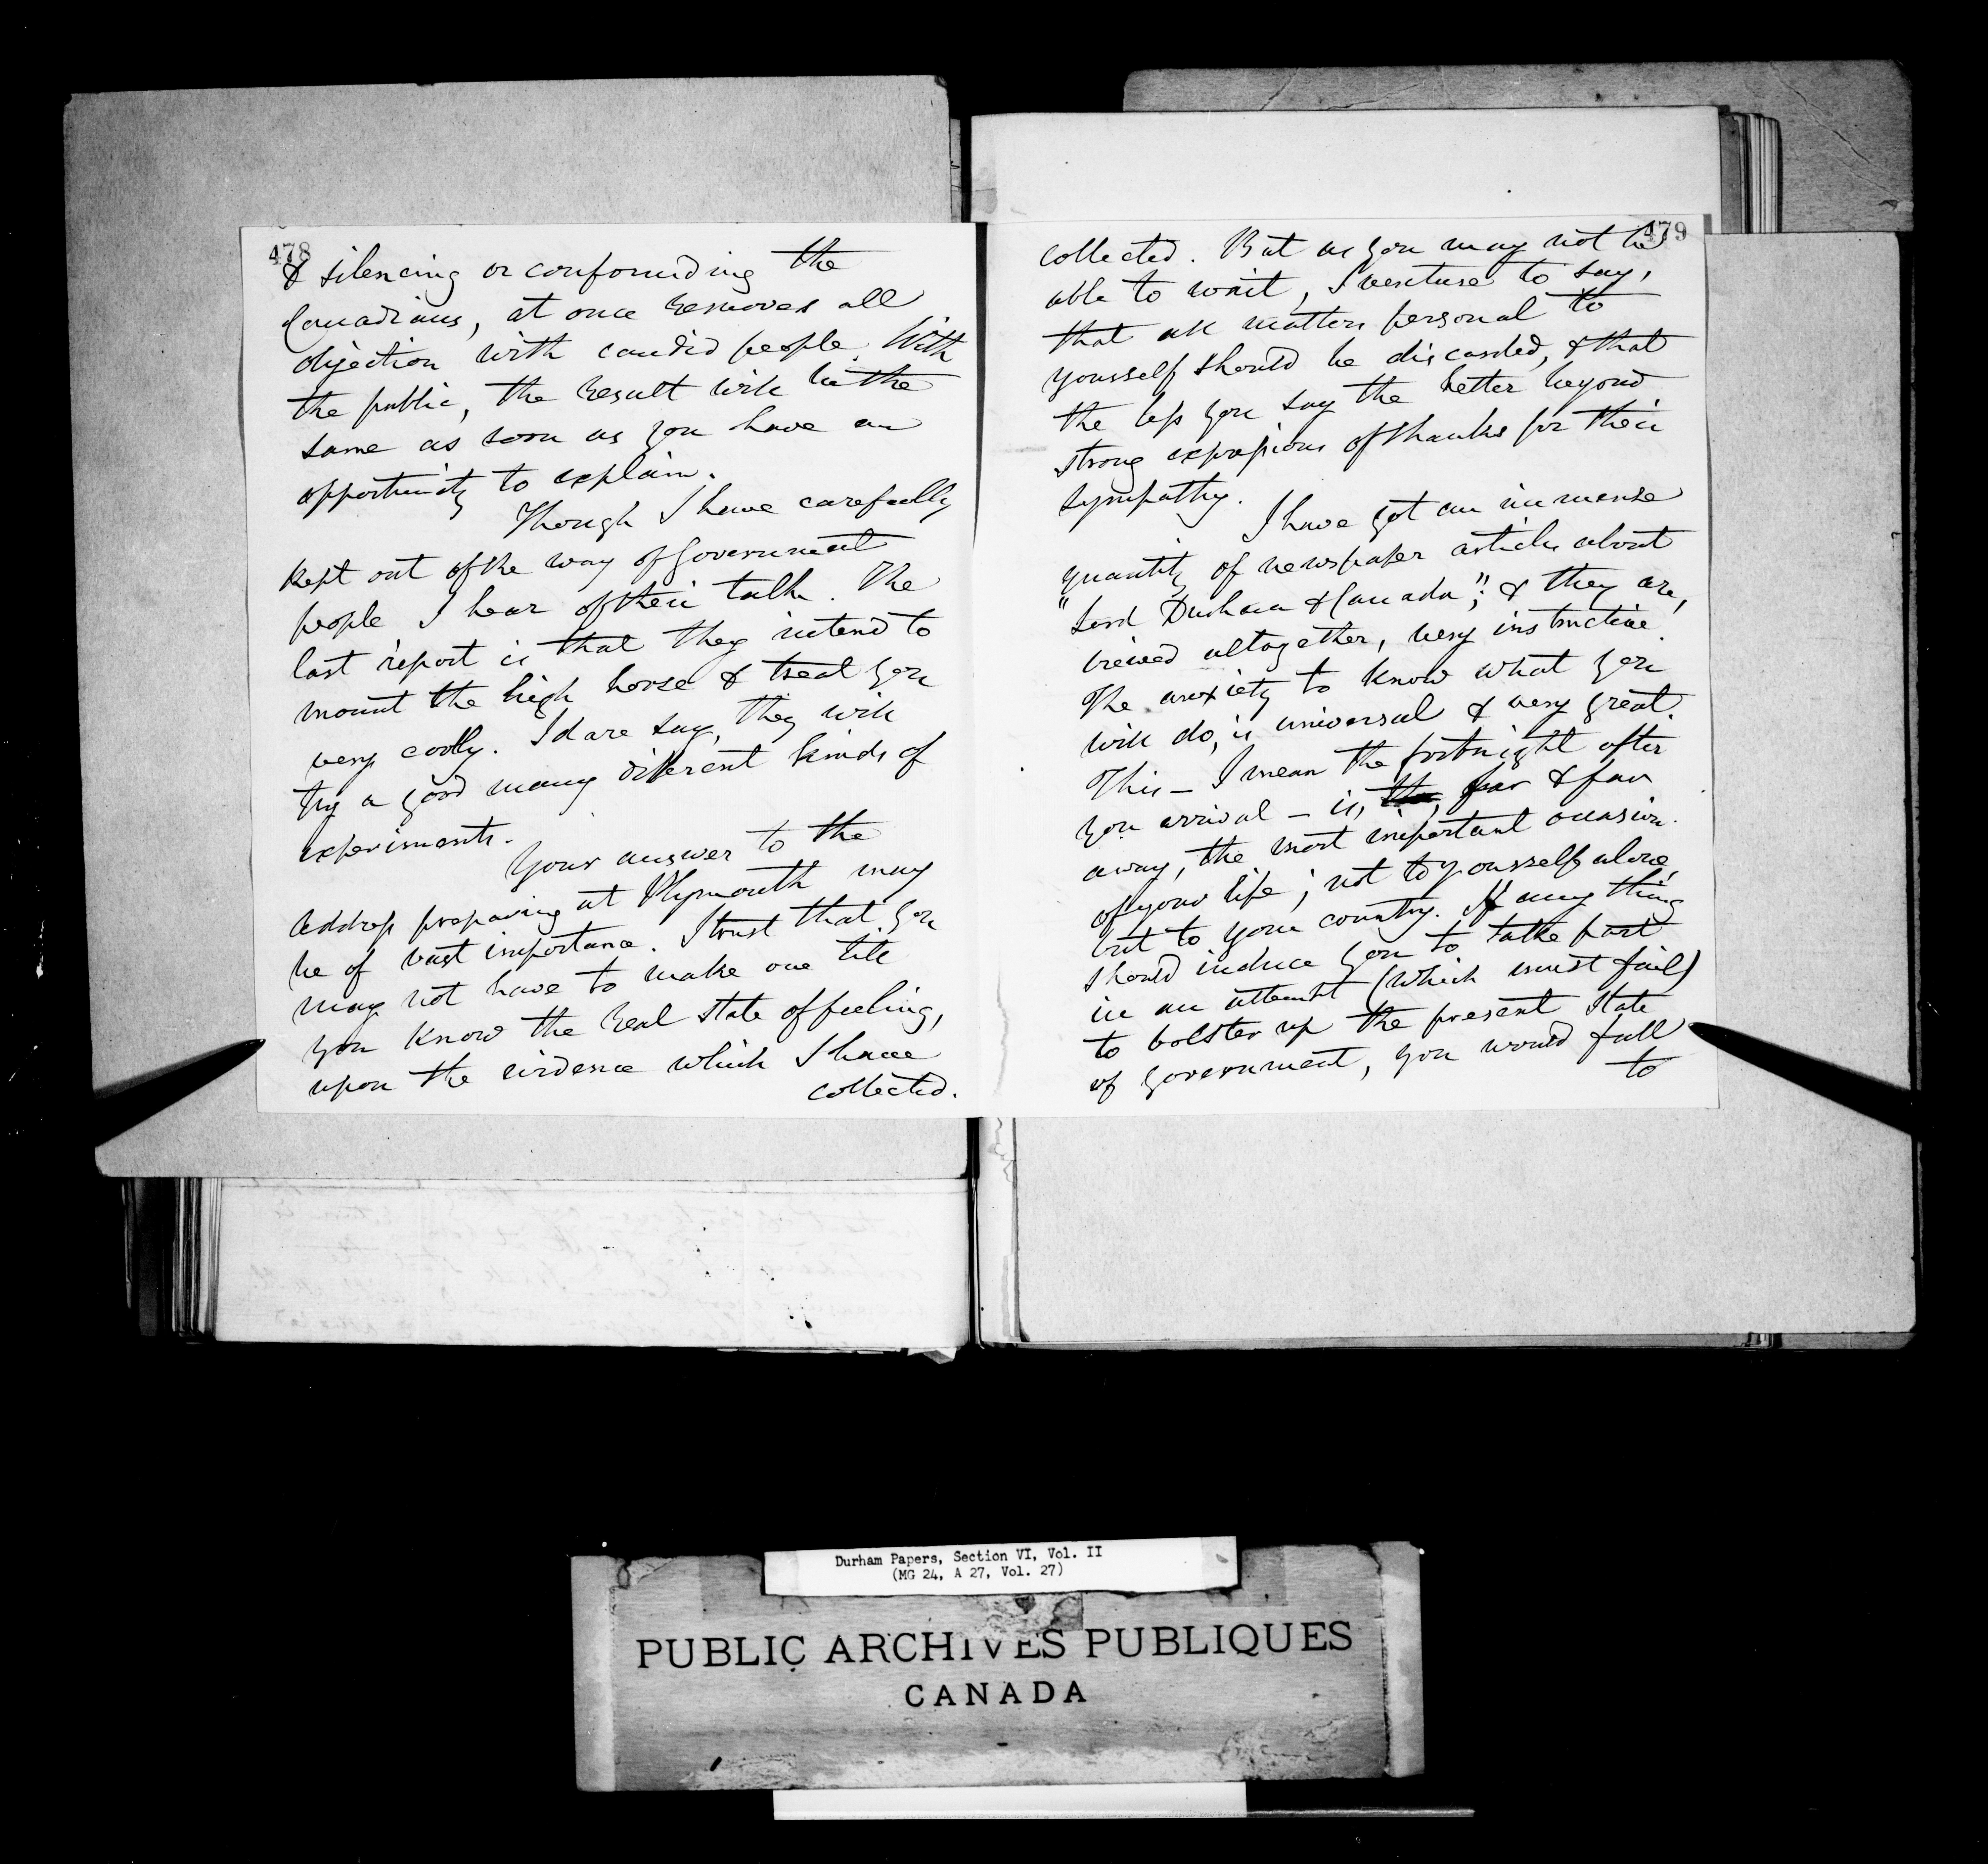 478
& silencing or confounding the
Canadians, at once removes all
objection with candid people. With
the public, the result will be the
same as soon as you have an
opportunity to explain.
Though I have carefully
kept out of the way of Government
people I hear of their talk. The
last report is that they intend to
mount the high horse & treat you
very coolly. I dare say, they will
try a good many different kinds of
experiments.
Your answer to the
Address preparing at Plymouth may
be of vast importance. I trust that you
may not have to make one till
you know the real state of feeling,
upon the evidence which I have
collected.
479
collected. But as you may not be
able to wait, I venture to say,
that all matters personal to
yourself should be discarded, & that
the less you say the better beyond
strong expressions of thanks for their
sympathy.
I have got an immense
quantity of newspaper articles about
"Lord Durham & Canada"; & they are,
viewed altogether, very instructive.
The anxiety to know what you
will do, is universal & very great.
This — I mean the fortnight after
you arrival — is, the, far & far
away, the most important occasion
of your life; not to yourself alone,
but to your country. If any thing
should induce you to take part
in an attempt (which must fail)
to bolster up the present state
of government, you would fall
to
Durham Papers, Section VI, Vol. II
(MG 24, A 27, Vol. 27)
PUBLIC ARCHIVES PUBLIQUES
CANADA